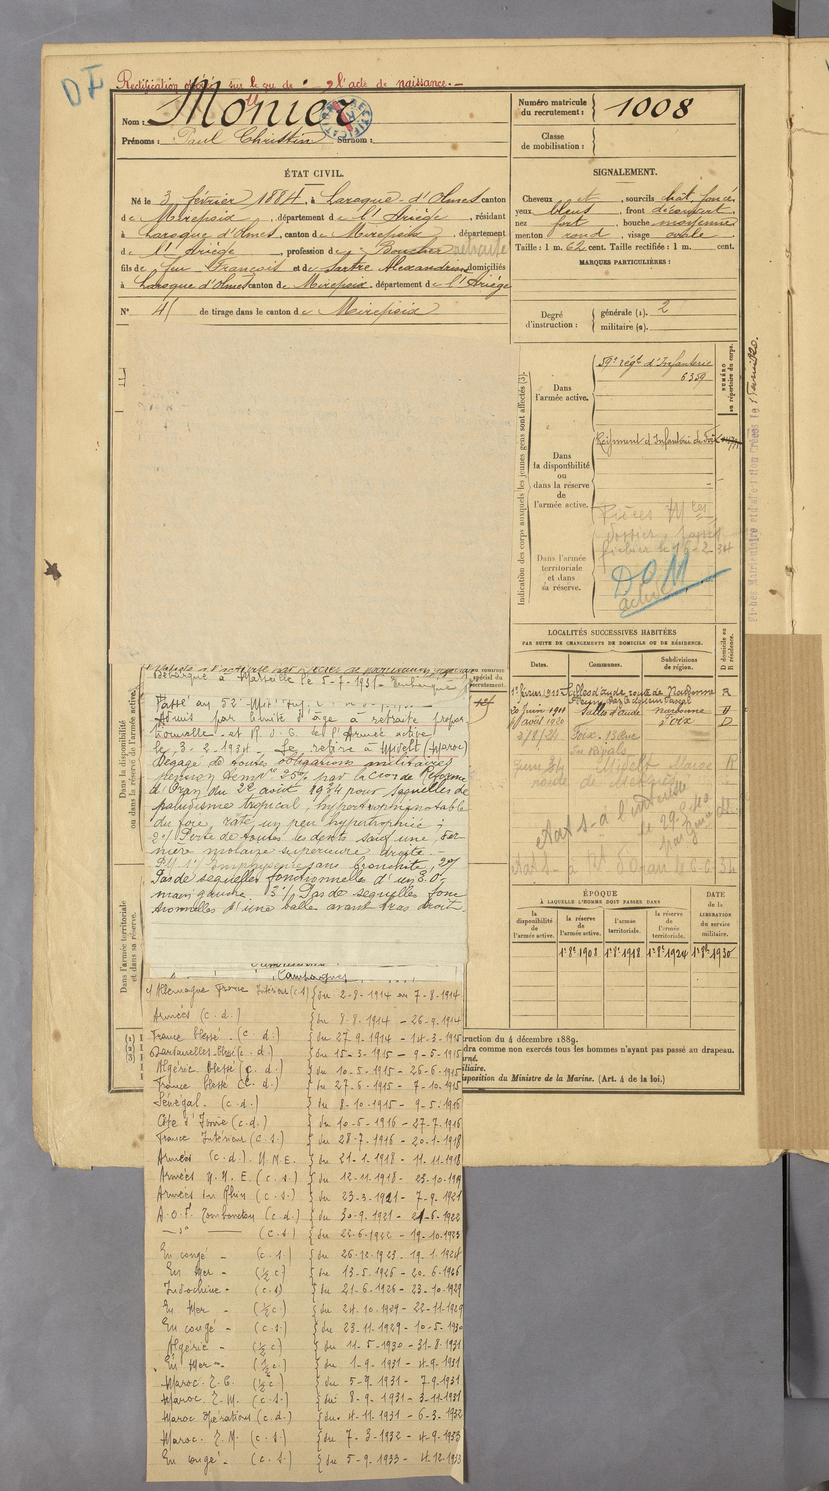 Rectification sur le de l'acte de naissance.
DI
Nom : Monier
Prénoms : Paul Christin Surnom :
Numéro matricule du recrutement : 1008
Classe de mobilisation :
ÉTAT CIVIL.
Né le 3 février 1884, à Laroque-d'Olmes canton
de Mirepoix, département de l'Ariège, résidant
à Laroque d'Olmes, canton de Mirepoix, département
de l'Ariège, profession de Boucher retraité
fils de feu François et de Sartre Alexandrine domiciliés
à Laroque d'Olmes canton de Mirepoix, département de l'Ariège
N° 41 de tirage dans le canton de Mirepoix
SIGNALEMENT.
Cheveux et sourcils chât. foncé
yeux bleus, front découvert,
nez fort, bouche moyenne
menton rond, visage ovale
Taille : 1 m. 62 cent. Taille rectifiée : 1 m. cent.
MARQUES PARTICULIÈRES :
Degré d'instruction : générale (1). 2
militaire (2).
Indication des corps auxquels les jeunes gens sont affectés (3).
NUMÉRO au répertoire du corps.
Dans l'armée active.
59e régt d'Infanterie
6359
Dans la disponibilité ou dans la réserve de l'armée active.
Régiment d'Infanterie de Foix
Dans l'armée territoriale et dans sa réserve.
Pièces
fichier le 16-2-34
DOM
active
LOCALITÉS SUCCESSIVES HABITÉES
PAR SUITE DE CHANGEMENTS DE DOMICILE OU DE RÉSIDENCE.
Dates. Communes. Subdivisions de région. D domicile ou R résidence.
Salles d'aude, route de Narbonne R
20 juin 1910 Salles d'aude Narbonne D
avril 1920 Foix D
2/8/24 Foix. 13 Rue
juin 34 Midelt Maroc R
route de Meknès
le 29-8-40
Dans la disponibilité ou dans la réserve de l'armée active.
Débarqué à Marseille le 5-7-1931. Embarqué
Passé au 52e
Admis par limite d'âge à retraite propor-
tionnelle et R. d. C. de l'Armée active
le 3-2-1934. Se retire à Midelt (Maroc)
Dégagé de toutes obligations militaires
pension temp re 25% par la Cion de Réforme
d'Oran du 22 août 1934 pour séquelles de
paludisme tropical, hypertrophie notable
du foie, rate un peu hypertrophiée ;
2°/ Perte de toutes les dents sauf une, der-
nière molaire supérieure droite.
emphysème sans bronchite, 2°/
Pas de séquelles fonctionnelles d'un
main gauche. 3°/ Pas de séquelles fonc-
tionnelles d'une balle avant bras droit.
Dans l'armée territoriale et dans sa réserve.
ÉPOQUE
À LAQUELLE L'HOMME DOIT PASSER DANS
DATE de la LIBÉRATION du service militaire.
la disponibilité de l'armée active. la réserve de l'armée active. l'armée territoriale. la réserve de l'armée territoriale.
1er 8e 1908 1er 8e 1918 1er 8e 1924 1er 8e 1930
ruction du 4 décembre 1889.
dra comme non exercés tous les hommes n'ayant pas passé au drapeau.
isposition du Ministre de la Marine. (Art. 4 de la loi.)
Campagnes
c/ Allemagne France Intérieur (c.s) du 2-8-1914 au 7-8-1914
Armées (c.d.) du 8-8-1914 - 26-9-1914
France blessé. (c.d.) du 27-9-1914 - 14-3-1915
Dardanelles blessé (c.d.) du 15-3-1915 - 9-5-1915
Algérie blessé (c.d.) du 10-5-1915 - 26-6-1915
France blessé (c.d.) du 27-6-1915 - 7-10-1915
Sénégal. (c.d.) du 8-10-1915 - 9-5-1916
Côte d'Ivoire (c.d.) du 10-5-1916 - 27-7-1916
France Intérieur (c.s.) du 28-7-1916 - 20-1-1918
Armées (c.d.) U.N.E. du 21-1-1918 - 11-11-1918
Armées U.N.E. (c.s.) du 12-11-1918 - 23-10-1919
Armées du Rhin (c.s.) du 23-3-1921 - 7-9-1921
A.O.F. Tombouctou (c.d.) du 30-9-1921 - 21-6-1922
-d°- (c.s) du 22-6-1922 - 19-10-1923
En congé - (c.s.) du 26-12-1923 - 19-1-1924
En Mer - (½ c) du 13-5-1926 - 20-6-1926
Indochine - (c.s) du 21-6-1926 - 23-10-1929
En Mer - (½ c) du 24-10-1929 - 22-11-1929
En congé - (c.s.) du 23-11-1929 - 10-5-1930
Algérie - (½ c) du 11-5-1930 - 31-8-1931
En Mer - (½ c) du 1-9-1931 - 4-9-1931
Maroc. (½ c) du 5-9-1931 - 7-9-1931
Maroc. T.M. (c.s.) du 8-9-1931 - 3-11-1931
Maroc Opérations (c.d.) du 4-11-1931 - 6-3-1932
Maroc. T.M. (c.s.) du 7-3-1932 - 4-9-1933
En congé - (c.s.) du 5-9-1933 - 4-12-1933